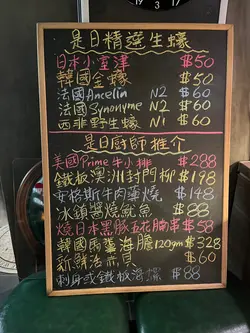 12 3
是日精選生蠔
日本小室津 $50
韓國金蠔 $50
法國Ancelin N2 $60
法國Synonyme N2 $60
西非野生蠔 N1 $60
是日厨師推介
美國Prime牛小排 $288
鐵板澳洲封門柳 $198
安格斯牛肉薄燒 $148
冰鎮醬燒魷魚 $88
燒日本黑豚五花腩串 $58
韓國馬糞海膽120gm $328
新鮮活蟶貝 $60
刺身或鐵板海螺 $88